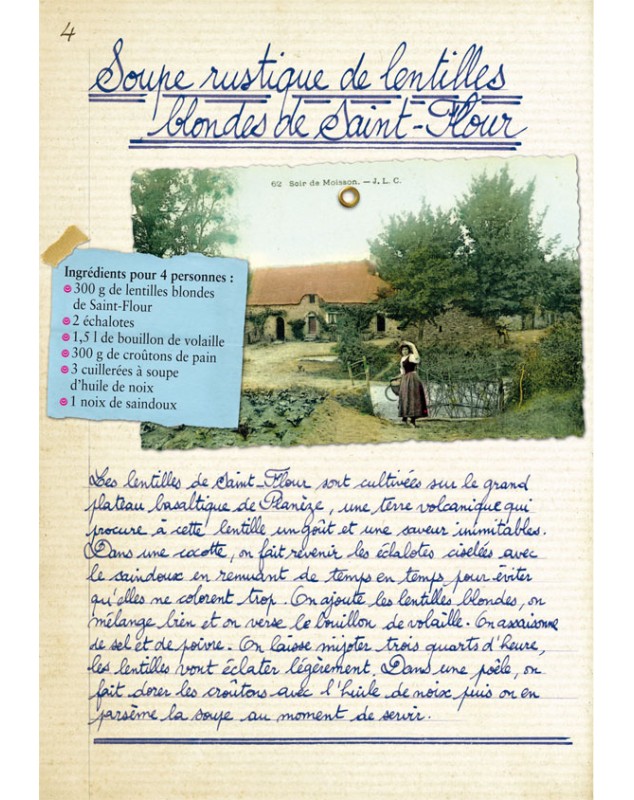 4
Soupe rustique de lentilles
blondes de Saint-Flour
62 Soir de Moisson. — J. L. C.
Ingrédients pour 4 personnes :
300 g de lentilles blondes
de Saint-Flour
2 échalotes
1,5 l de bouillon de volaille
300 g de croûtons de pain
3 cuillerées à soupe
d'huile de noix
1 noix de saindoux
Les lentilles de Saint-Flour sont cultivées sur le grand
plateau basaltique de Planèze, une terre volcanique qui
procure à cette lentille un goût et une saveur inimitables.
Dans une cocotte, on fait revenir les échalotes ciselées avec
le saindoux en remuant de temps en temps pour éviter
qu'elles ne colorent trop. On ajoute les lentilles blondes, on
mélange bien et on verse le bouillon de volaille. On assaisonne
de sel et de poivre. On laisse mijoter trois quarts d'heure,
les lentilles vont éclater légèrement. Dans une poêle, on
fait dorer les croûtons avec l'huile de noix puis on en
parsème la soupe au moment de servir.